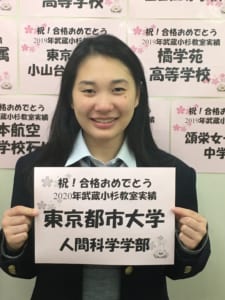 高等学校
祝！合格おめでとう
2019年武蔵小杉教室実績
東京
小山台
高等
祝！合格おめでとう
2019年武蔵小杉教室実績
橘学苑
高等学校
祝！合格おめでとう
本航空
学校石
祝！合格おめでとう
頌栄女
中学
祝！合格おめでとう
2020年武蔵小杉教室実績
東京都市大学
人間科学学部